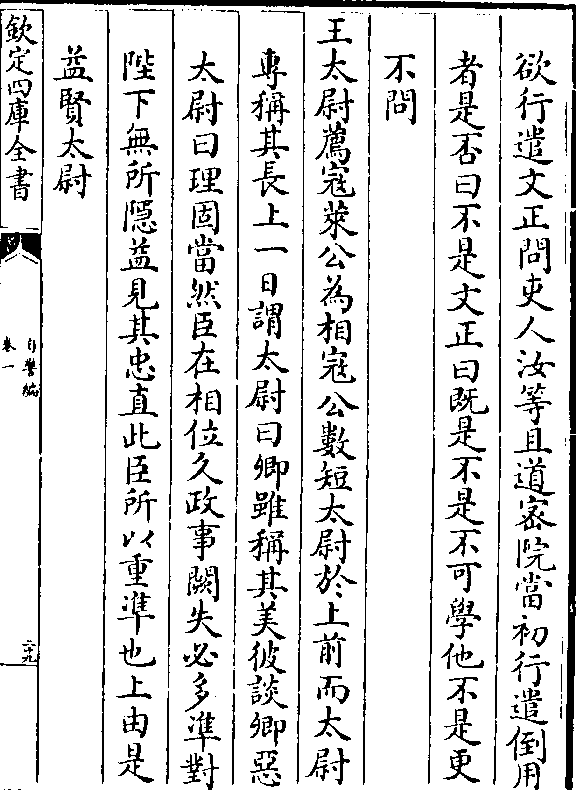 欲行遣文正問吏人汝等且道宻院當初行遣倒用
者是否曰不是文正曰既是不是不可學他不是更
不問
王太尉薦冦萊公為相冦公數短太尉於上前而太尉
專稱其長上一日謂太尉曰卿雖稱其美彼談卿惡
太尉曰理固當然臣在相位久政事闕失必多準對
陛下無所隱益見其忠直此臣所以重準也上由是
益賢太尉
欽定四庫全書
自警編
卷一
二九